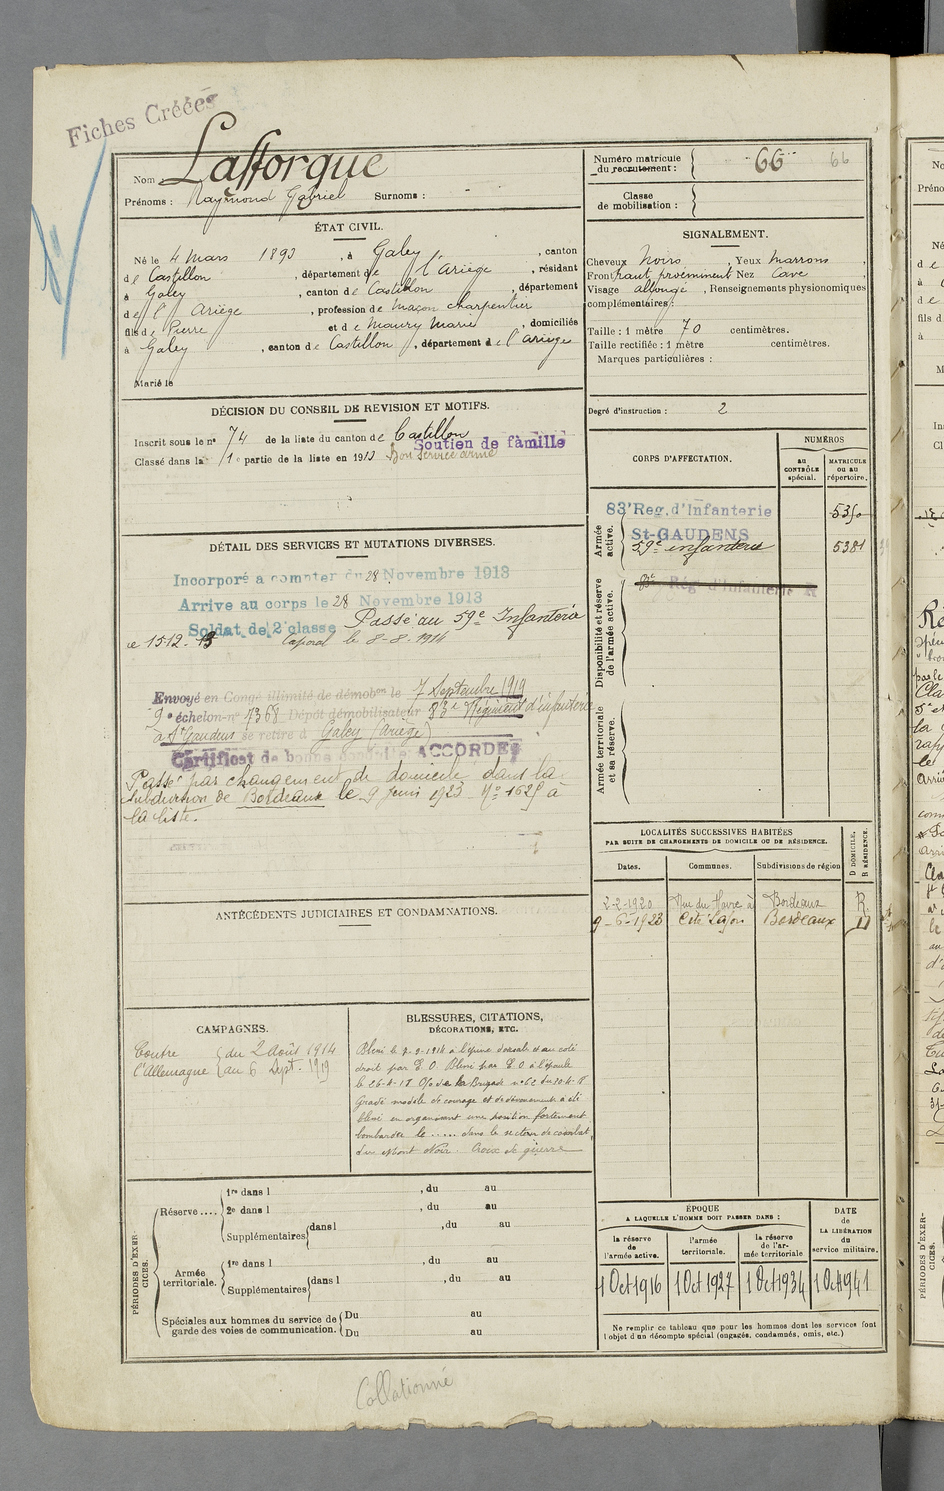 Fiches Créées
Nom : Lafforgue
Prénoms : Raymond Gabriel Surnoms : -
Numéro matricule du recrutement : 66 66
Classe de mobilisation :
ÉTAT CIVIL.
Né le 4 Mars 1893, à Galey, canton
de Castillon, département de l'Ariège, résidant
à Galey, canton de Castillon, département
de l'Ariège, profession de maçon charpentier
fils de Pierre et de Maury Marie, domiciliés
à Galey, canton de Castillon, département de l'Ariège
Marié le
SIGNALEMENT.
Cheveux Noirs, Yeux marrons,
Front haut proéminent Nez Cave
Visage allongé, Renseignements physionomiques
complémentaires :
Taille : 1 mètre 70 centimètres.
Taille rectifiée : 1 mètre centimètres.
Marques particulières :
Degré d'instruction : 2
DÉCISION DU CONSEIL DE REVISION ET MOTIFS.
Inscrit sous le n° 74 de la liste du canton de Castillon
Soutien de famille
Classé dans la 1e partie de la liste en 1913 Bon service armé
DÉTAIL DES SERVICES ET MUTATIONS DIVERSES.
Incorporé à compter du 28 Novembre 1913
Arrivé au corps le 28 Novembre 1913
Soldat de 2e classe Passé au 59e Infanterie
le 15-12-13 Caporal le 8-8-1914
Envoyé en Congé illimité de démobon le 7 Septembre 1919
9e échelon n° 4368 Dépôt démobilisateur 83e Régiment d'infanterie
à St Gaudens se retire à Galey (Ariège)
Certificat de bonne conduite ACCORDÉ
Passé par changement de domicile dans la
subdivision de Bordeaux le 9 Juin 1923 - N° 1625 à
la liste.
CORPS D'AFFECTATION.
NUMÉROS
au CONTRÔLE spécial.
MATRICULE ou au répertoire.
Armée active.
83e Reg. d'Infanterie
St-GAUDENS
5350
59e infanterie 5381
Disponibilité et réserve de l'armée active.
Rég. d'Infanterie
Armée territoriale et sa réserve.
LOCALITÉS SUCCESSIVES HABITÉES
PAR SUITE DE CHANGEMENTS DE DOMICILE OU DE RÉSIDENCE.
Dates. Communes. Subdivisions de région D DOMICILE, R RÉSIDENCE.
2-2-1920 Rue du Havre à Bordeaux R
9-6-1923 Cité Lafon Bordeaux D
ANTÉCÉDENTS JUDICIAIRES ET CONDAMNATIONS.
CAMPAGNES.
Contre du 2 Août 1914
l'Allemagne au 6 Sept. 1919
BLESSURES, CITATIONS,
DÉCORATIONS, ETC.
Blessé le 7-9-1914 à l'épine dorsale et au coté
droit par E. O. Blessé par E. O à l'épaule
le 26-4-18 O/ de la Brigade n° 62 du 20-5-18
Gradé modèle de courage et de dévouement a été
blessé en organisant une position fortement
bombardée le ..... dans le secteur de combat
du Mont Noir. Croix de guerre
PÉRIODES D'EXERCICES.
Réserve .... 1re dans l , du au
2e dans l , du au
Supplémentaires dans l , du au
Armée territoriale. 1re dans l , du au
Supplémentaires dans l , du au
Spéciales aux hommes du service de garde des voies de communication. Du au
Du au
ÉPOQUE
A LAQUELLE L'HOMME DOIT PASSER DANS :
la réserve de l'armée active. l'armée territoriale. la réserve de l'armée territoriale
DATE de LA LIBÉRATION du service militaire.
1 Oct 1916 1 Oct 1927 1 Oct 1934 1 Oct 1941
Ne remplir ce tableau que pour les hommes dont les services font
l'objet d'un décompte spécial (engagés, condamnés, omis, etc.)
Collationné